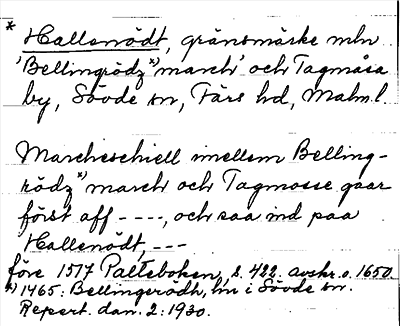 * Hallenödt, gränsmärke mln
'Bellingrödz*) march' och Tagmåsa
by, Sövde sn, Färs hd, Malm.l.
Marcheschiell imellem Belling-
rödz*) march och Tagmosse gaar
först aff - - - -, och saa ind paa
Hallenödt, - - -
före 1517 Palteboken, s. 422. avskr. o. 1650
*) 1465: Bellingerödh, hn i Sövde sn.
Repert. dan. 2: 1930.